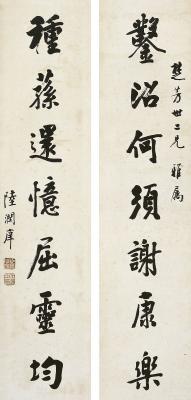 楚芳世二兄 雅屬
鑿沼何須謝康樂
種蓀還憶屈靈均
陸潤庠